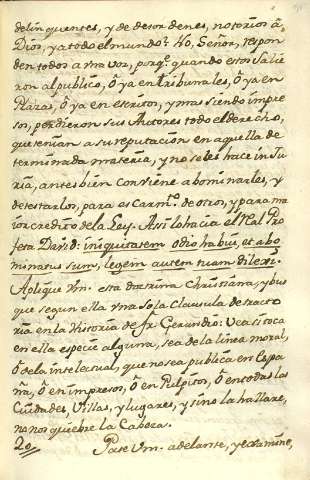 delinquentes, y de desordenes, notorios â
Dios, y a todo el mundo? No, Señor, respon
den todos a una voz, porqe. quando estos salie
ron al publico, ô ya en tribunales, ô ya en
Plazas, ô ya en escritos, y mas siendo impre
sos, perdieron sus Autores todo el derecho,
que tenian a su reputacion en aquella de
terminada materia, y no se les hace inju
ria, antes bien conviene abominarles, y
detestarlos, para escarmto. de otros, y para ma
ior credito de la Ley. Assi lo hacia el Real Pro
feta David: iniquitatem odio habui, et abo
minatus sum, legem autem tuam dilexi.
Aplique Vm. esta doctrina Christiana, y bus
que segun ella una sola clausula detracto
ria en la Historia de fr. Gerundio: Vea si toca
en ella especie alguna, sea de la linea moral,
ô de la intelectual, que no sea publica en Espa
ña, ô en impresos, ô en Pulpitos, ô en todas las
Ciudades, Villas, y lugares, y sino la hallare,
no nos quiebre la Cabeza.
20// Pase Vm. adelante, y examine,